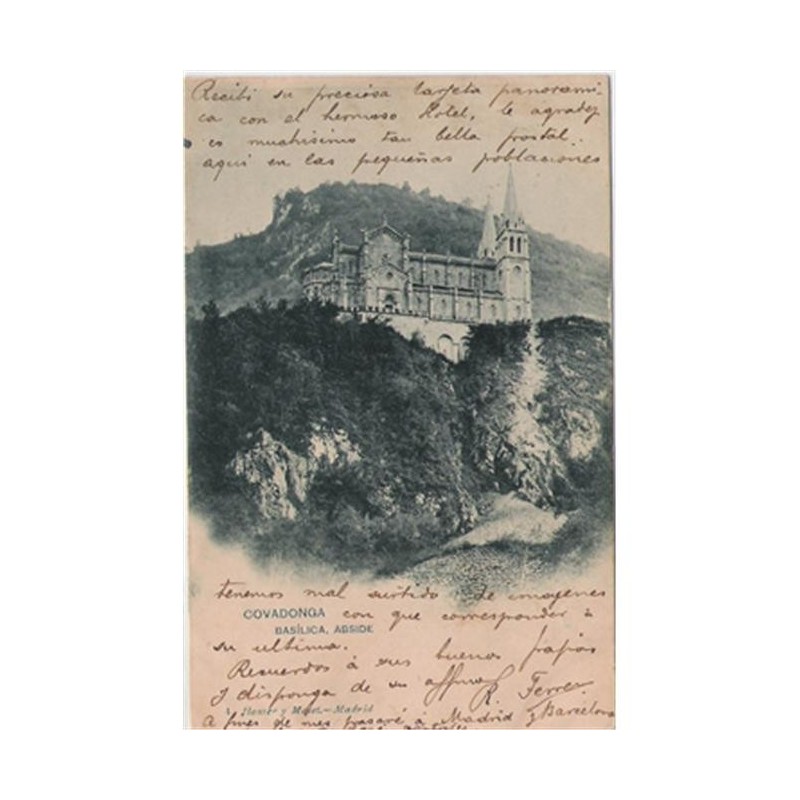 Recibi su preciosa tarjeta panorami-
ca con el hermoso Hotel, le agradez
co muchisimo tan bella postal.
aqui en las pequeñas poblaciones
tenemos mal surtido de imagenes
COVADONGA con que corresponder à
BASÍLICA, ABSIDE
su ultima.
Recuerdos à sus buenos papàs
y disponga de su affmo R. Ferrer
1. Hauser y Menet.—Madrid
A fines de mes pasaré à Madrid y Barcelona